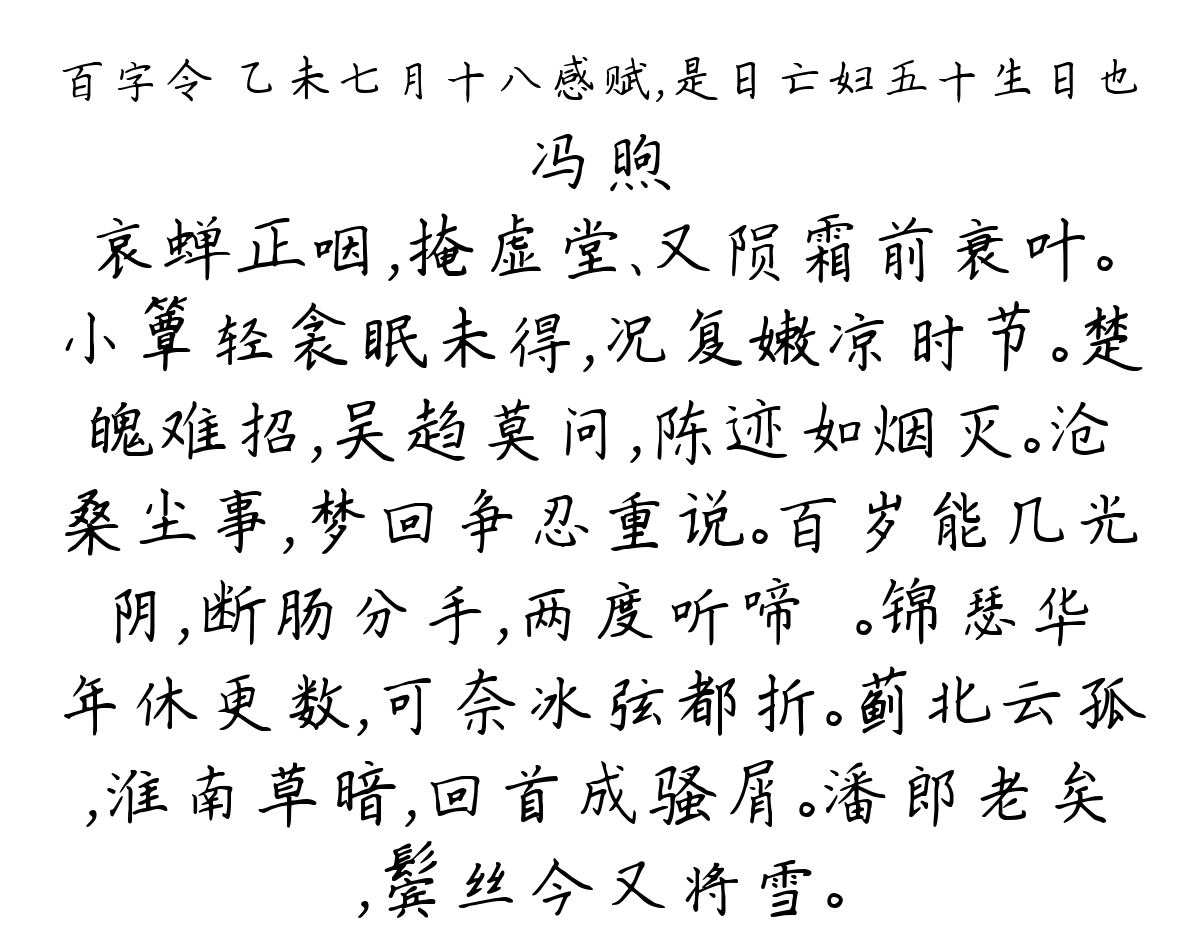 百字令 乙未七月十八感赋,是日亡妇五十生日也
冯煦
哀蝉正咽,掩虚堂、又陨霜前衰叶。
小簟轻衾眠未得,况复嫩凉时节。楚
魄难招,吴趋莫问,陈迹如烟灭。沧
桑尘事,梦回争忍重说。百岁能几光
阴,断肠分手,两度听啼 。锦瑟华
年休更数,可奈冰弦都折。蓟北云孤
,淮南草暗,回首成骚屑。潘郎老矣
,鬓丝今又将雪。